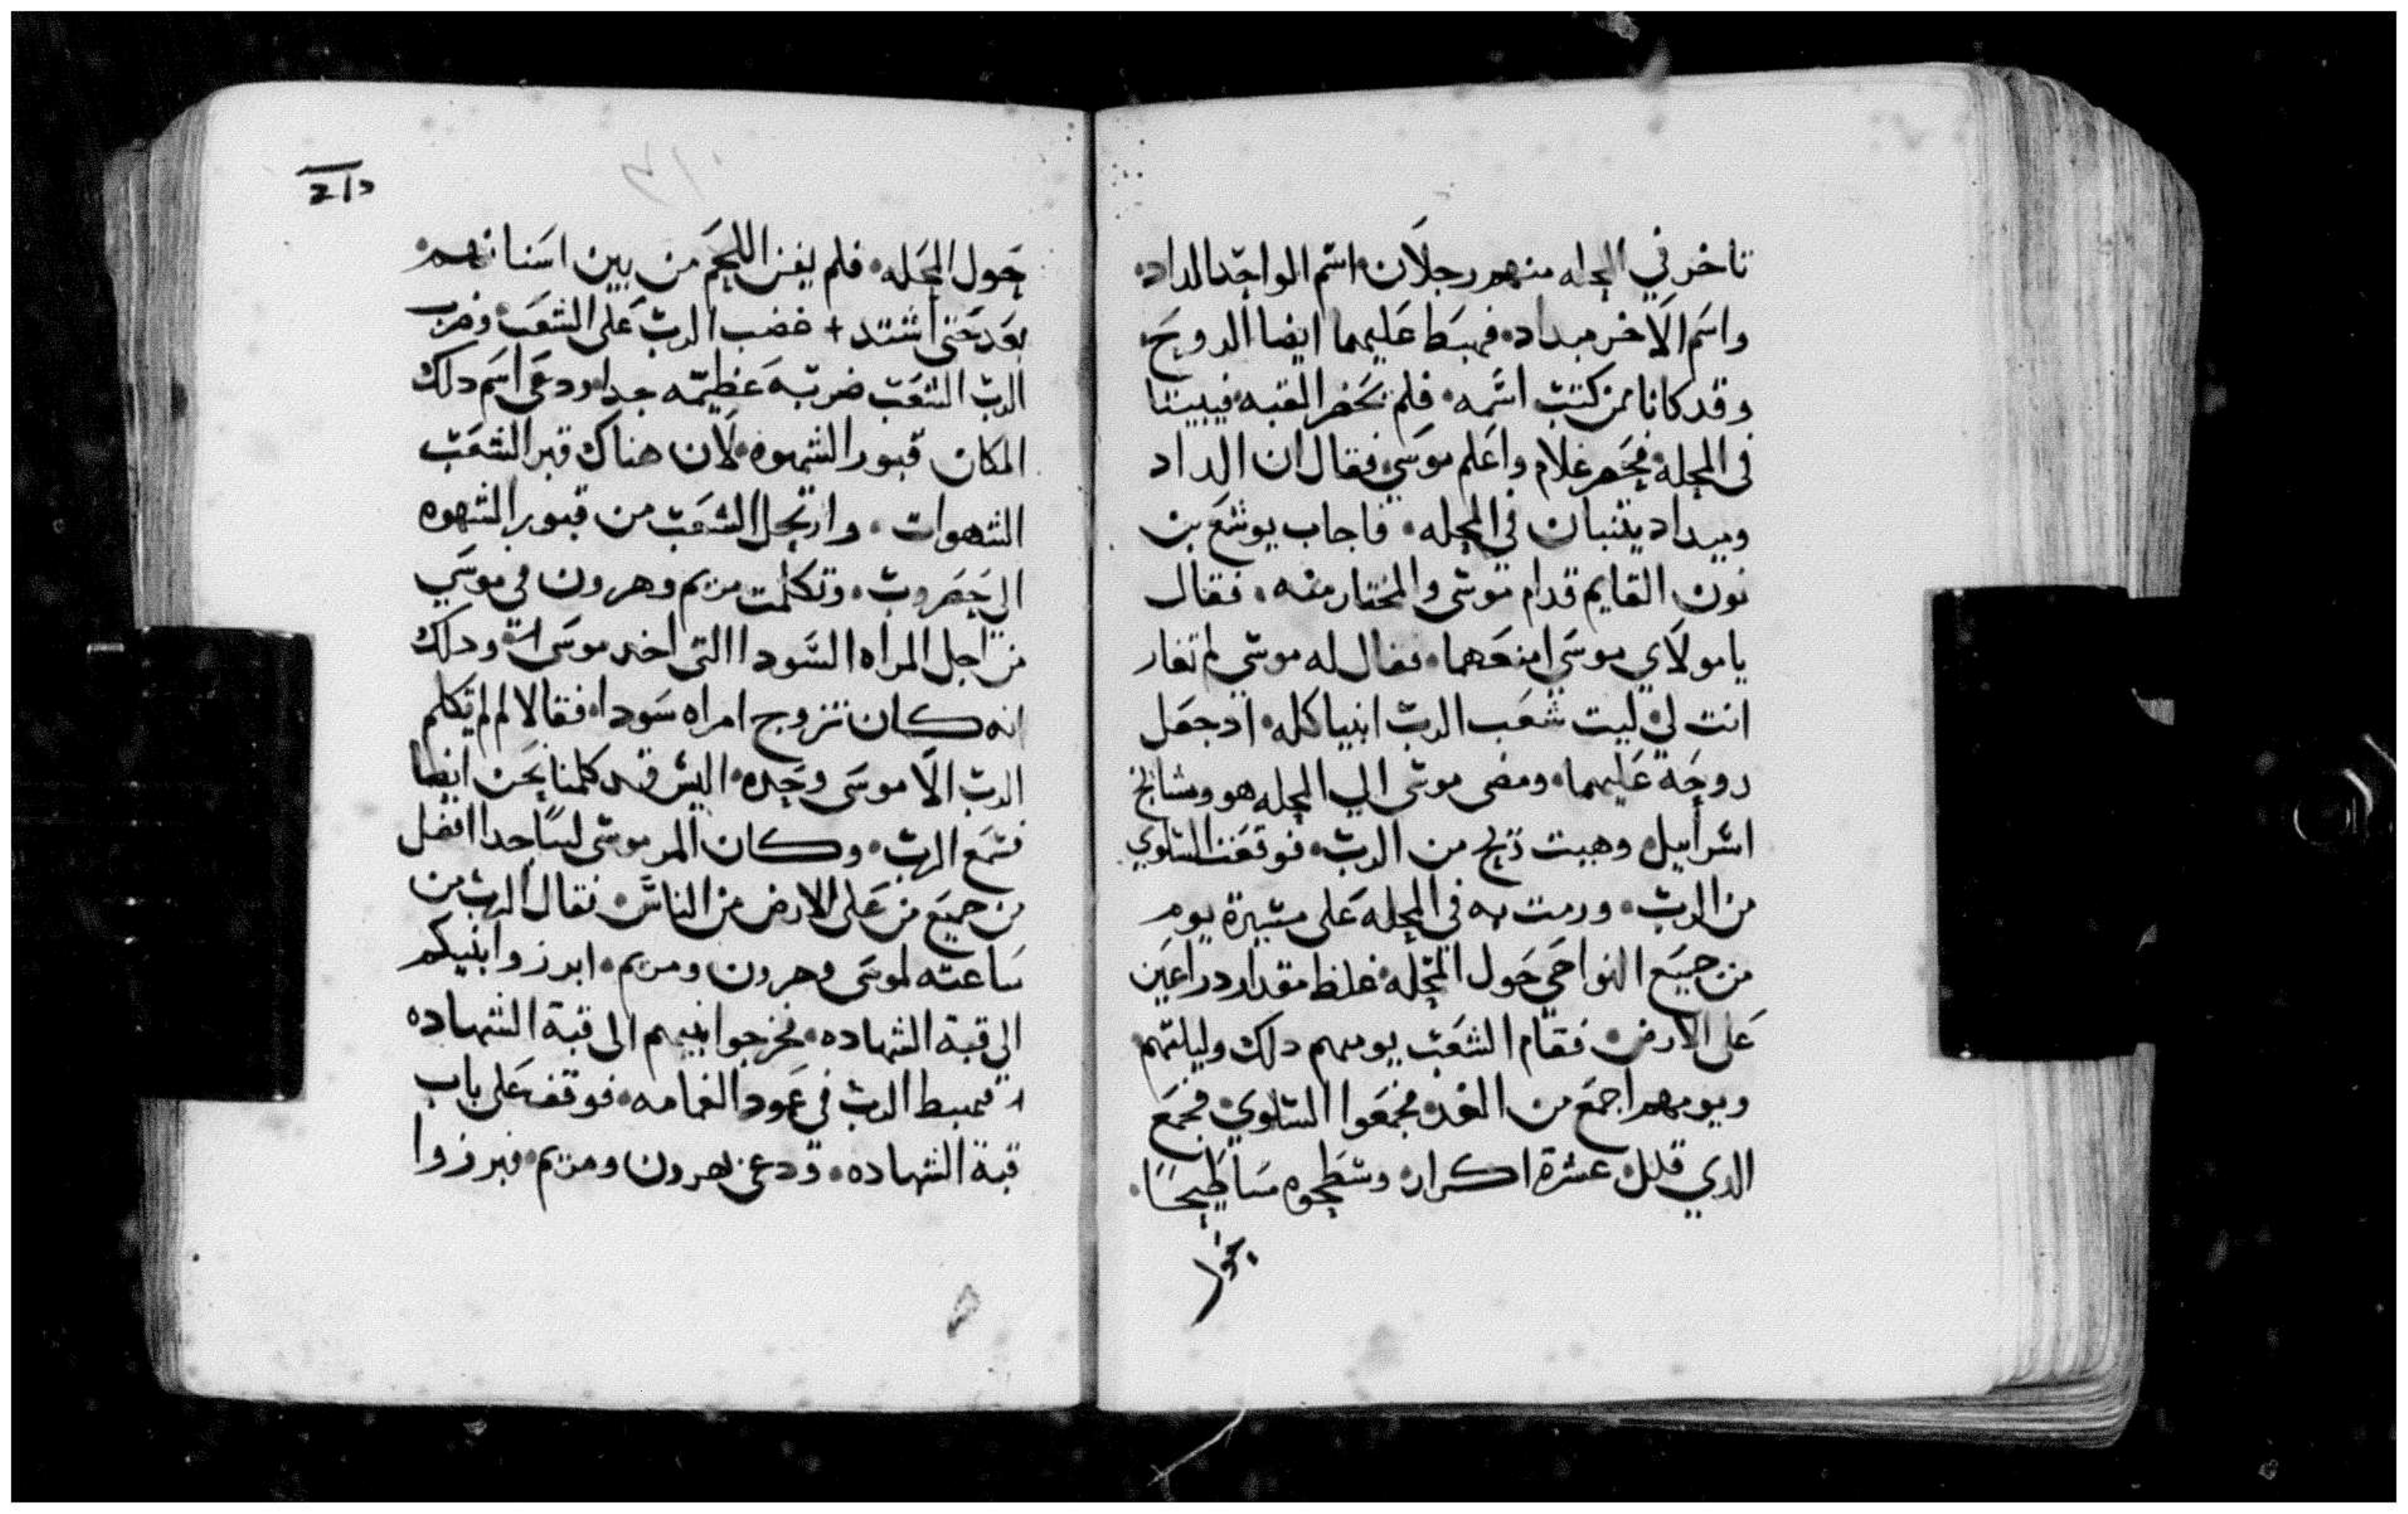 تاخر في المحله منهم رجلان اسم الواحد الداد
واسم الاخر ميداد فهبط عليهما ايضا الروح
وقد كانا ممن كتب اسمه فلم يحضر القبه فيبيتنا
في المحله فحضر غلام واعلم موسي فقال ان الداد
وميداد يتنبان في المحله فاجاب يوشع بن
نون القايم قدام موسى والمختار منه فقال
يا مولاي موسى امنعهما فقال له موسي لم تغار
انت لي ليت شعب الرب انبيا كله اد جعل
روحه عليهما ومضى موسى الي المحله هو ومشايخ
اسراييل وهبت ريح من الرب فوقعت السلوي
من الرب ورمت به في المحله على مسيرة يوم
من جميع النواحي حول المحله غلظ مقدار دراعين
على الارض فقام الشعب يومهم دلك وليلتهم
ويومهم اجمع من الغد فجمعوا السلوي فجمع
الدي قلل عشرة اكرار وسطحوه مساطيحا
حول
حول المحله فلم يفن اللحم من بين اسنانهم
بعد حتى اشتد + غضب الرب على الشعب وضرب
الرب الشعب ضربه عظيمه جدا ودعى اسم دلك
المكان قبور الشهوه لان هناك قبر الشعب
الشهوات وارتحل الشعب من قبور الشهوه
الي حضروت وتكلمت مريم وهرون في موسي
من اجل المراه السودا التى اخد موسى ودلك
انه كان تزوج امراه سودا فقالا لم لم يكلم
الرب الا موسى وحده اليس قد كلمنا نحن ايضا
فسمع الرب وكان المر موسى لينا جدا افضل
من جميع من على الارض من الناس فقال الرب من
ساعته لموسى وهرون ومريم ابرزوا ابنيكم
الي قبة الشهاده فخرجوا ابنيهم الى قبة الشهاده
فهبط الرب في عمود الغمامه فوقف على باب
قبة الشهاده ودعى هرون ومريم فبرزوا